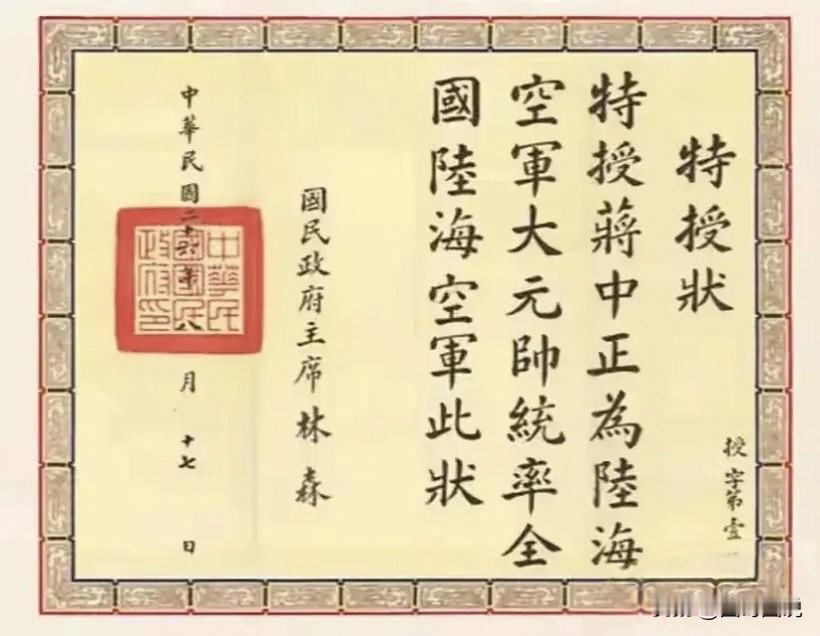 特授狀
授字第壹
特授蔣中正為陸海
空軍大元帥統率全
國陸海空軍此狀
國民政府主席林森
中華民國二十六年八月十七日
中華民
國國民
政府印